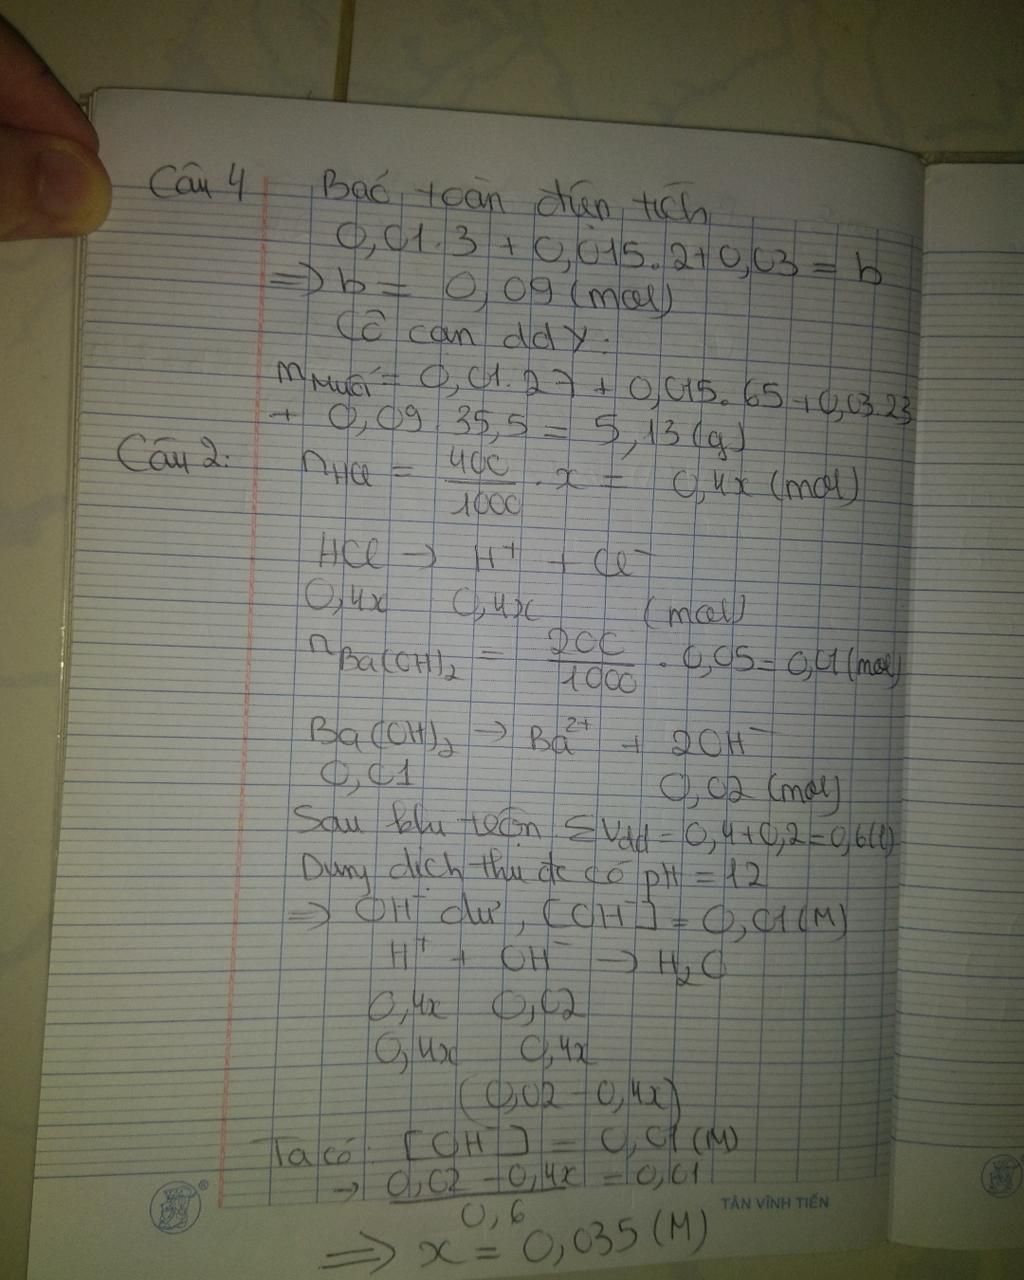 Câu 4 Bảo toàn điện tích
0,01.3 + 0,015.2+0,03 = b
=> b = 0,09 (mol)
Cô cạn dd Y:
m muối = 0,01.27 + 0,015.65 + 0,03.23
+ 0,09.35,5 = 5,13 (g)
Câu 2: nHCl = 400/1000 . x = 0,4x (mol)
HCl → H+ + Cl-
0,4x 0,4x (mol)
nBa(OH)2 = 200/1000 . 0,05 = 0,01 (mol)
Ba(OH)2 → Ba2+ + 2OH-
0,01 0,02 (mol)
Sau khi trộn ΣVdd = 0,4+0,2=0,6(l)
Dung dịch thu đc có pH = 12
=> OH- dư, [OH-] = 0,01 (M)
H+ + OH- → H2O
0,4x 0,02
0,4x 0,4x
(0,02 - 0,4x)
Ta có [OH-] = 0,01 (M)
→ (0,02 - 0,4x)/0,6 = 0,01
TÂN VĨNH TIẾN
=> x = 0,035 (M)